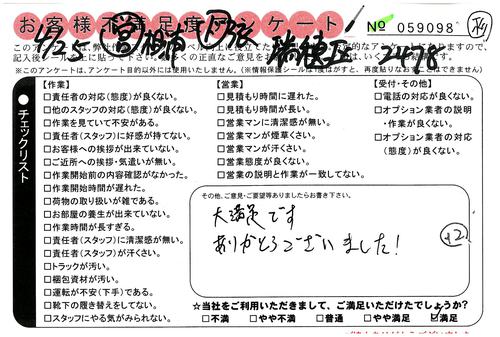 お客様不満足度アンケート
No 059098
※このアンケートは、アンケート目的以外には使用いたしません。(※情報保護シールは1度はがすと、再度貼りなおすことはできません)
チェックリスト
【作業】
□責任者の対応(態度)が良くない。
□他のスタッフの対応(態度)が良くない。
□作業を見ていて不安がある。
□責任者(スタッフ)に好感が持てない。
□お客様への挨拶が出来ていない。
□ご近所への挨拶・気遣いが無い。
□作業開始前の内容確認がなかった。
□作業開始時間が遅れた。
□荷物の取り扱いが雑である。
□お部屋の養生が出来ていない。
□作業時間が長すぎる。
□責任者(スタッフ)に清潔感が無い。
□責任者(スタッフ)が汗くさい。
□トラックが汚い。
□梱包資材が汚い。
□運転が不安(下手)である。
□靴下の履き替えをしてない。
□スタッフにやる気がみられない。
【営業】
□見積もり時間に遅れた。
□見積もり時間が長い。
□営業マンに清潔感が無い。
□営業マンが煙草くさい。
□営業マンが汗くさい。
□営業態度が良くない。
□営業の説明と作業が一致してない。
【受付・その他】
□電話の対応が良くない。
□オプション業者の説明
・作業が良くない。
□オプション業者の対応
(態度)が良くない。
その他、ご意見・ご要望等ありましたらお書き下さい。
大満足です
ありがとうございました!
☆当社をご利用いただきまして、ご満足いただけたでしょうか?
□不満 □やや不満 □普通 □やや満足 ☑満足